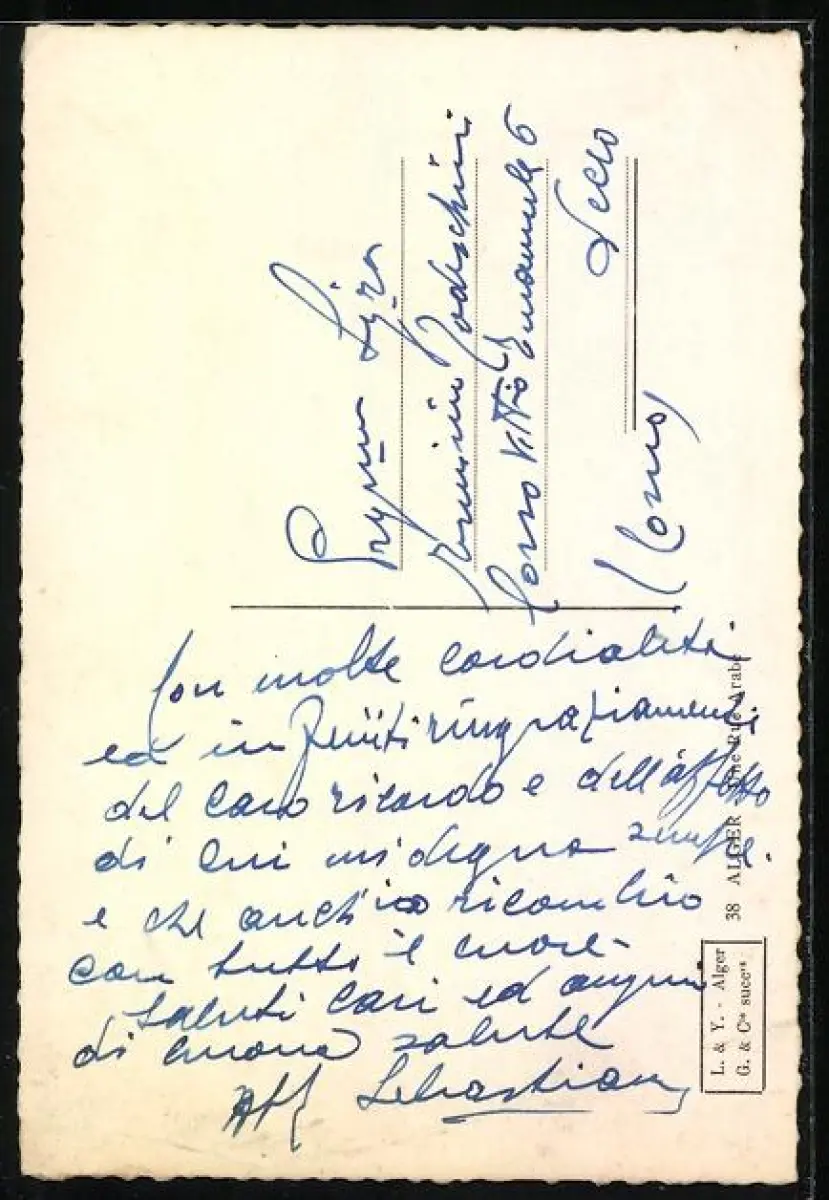 Con molte cordialità
ed infiniti ringraziamenti
del caro ricordo e dell'affetto
di cui mi degna sempre.
e che anch'io ricambio
con tutto il cuore-
Saluti cari ed auguri
di buona salute
Aff Sebastiano
Sig.ra
Corso Vitt.o Emanuele 6
Lecco
(Como)
38 ALGER Une Rue Arabe
L. & Y. - Alger
G. & Cie succrs